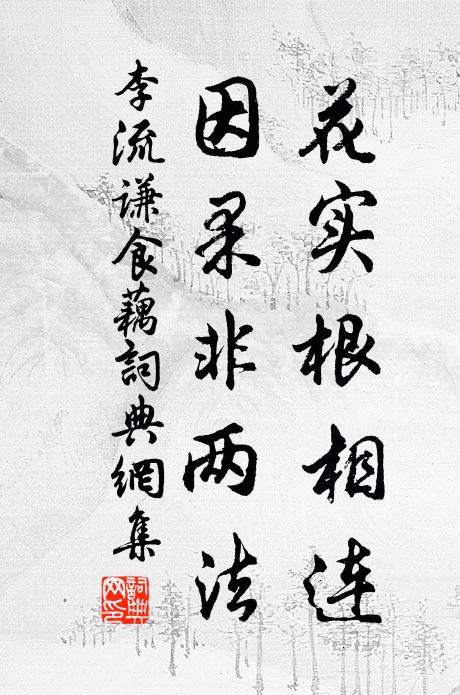 花实根相连
因果非两法
李流谦食藕詞典網集
詞典
网印